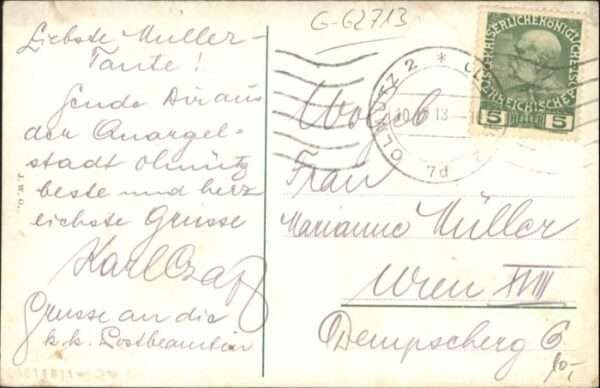 G-62713
Liebste Müller-
Tante!
Sende Dir aus
der Quargel-
stadt Olmütz
beste und herz
lichste Grüsse
Karl
Grüsse an die
k.k. Postbeamtin
J. W. O.
KAISERLICHE KÖNIGLICHE
ÖSTERREICHISCHE POST
5 HELLER 5
OLMÜTZ 2 *
13
7d
Wolgeb
Frau
Marianne Müller
Wien XVIII
Dempscherg 6
10,-